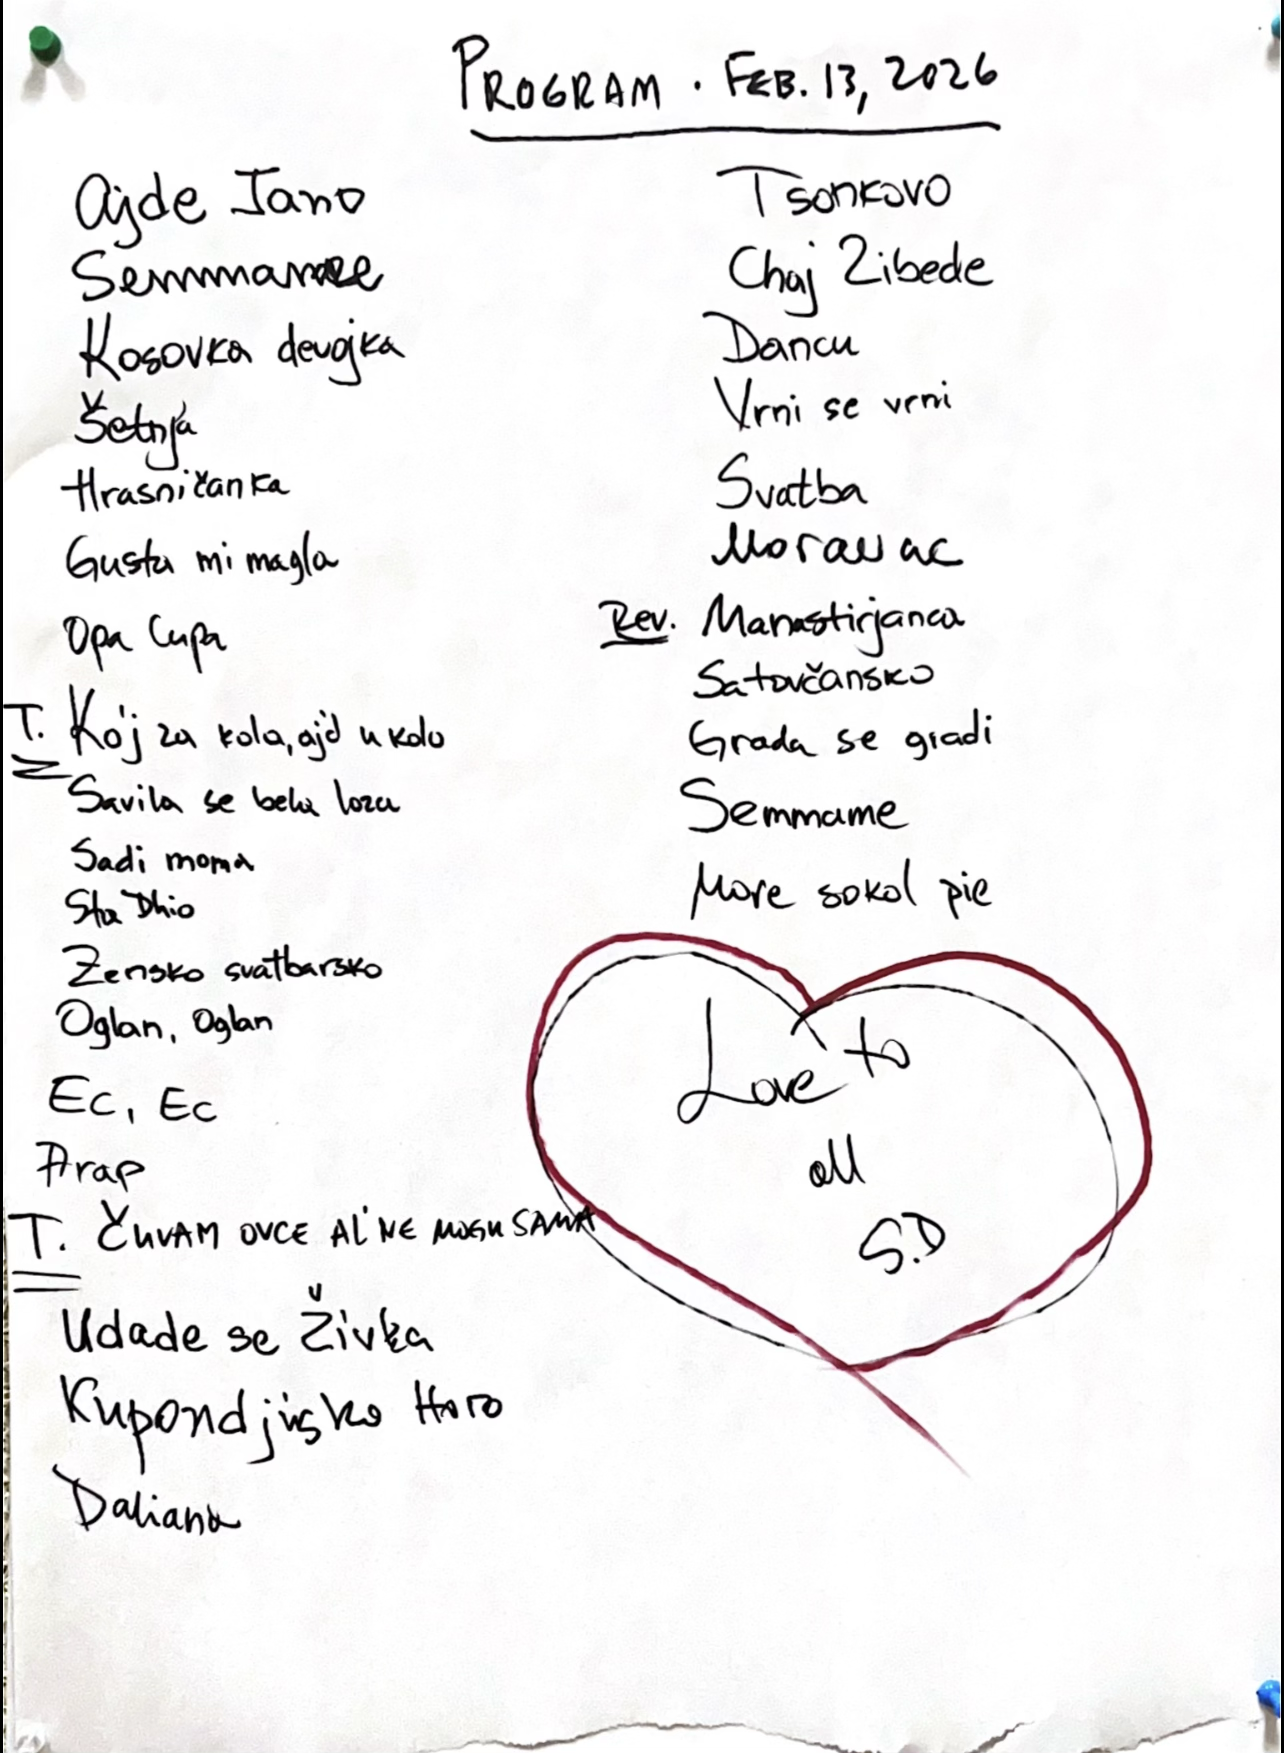 PROGRAM . FEB. 13, 2026
Ajde Jano
Semmamme
Kosovka devojka
Šetnja
Hrasničanka
Gusta mi magla
Opa Cupa
T. Koj za kola, ajd u kolo
Savila se bela loza
Sadi moma
Sta Dhio
Zensko svatbarsko
Oglan, Oglan
Ec, Ec
Arap
T. ČUVAM OVCE AL' NE MOGU SAMA
Udade se Živka
Kupondjisko Horo
Daliana
Tsonkovo
Chaj Zibede
Dancu
Vrni se vrni
Svatba
Moravac
Rev. Manastirjanca
Satovčansko
Grada se gradi
Semmame
More sokol pie
Love to
all
S.D